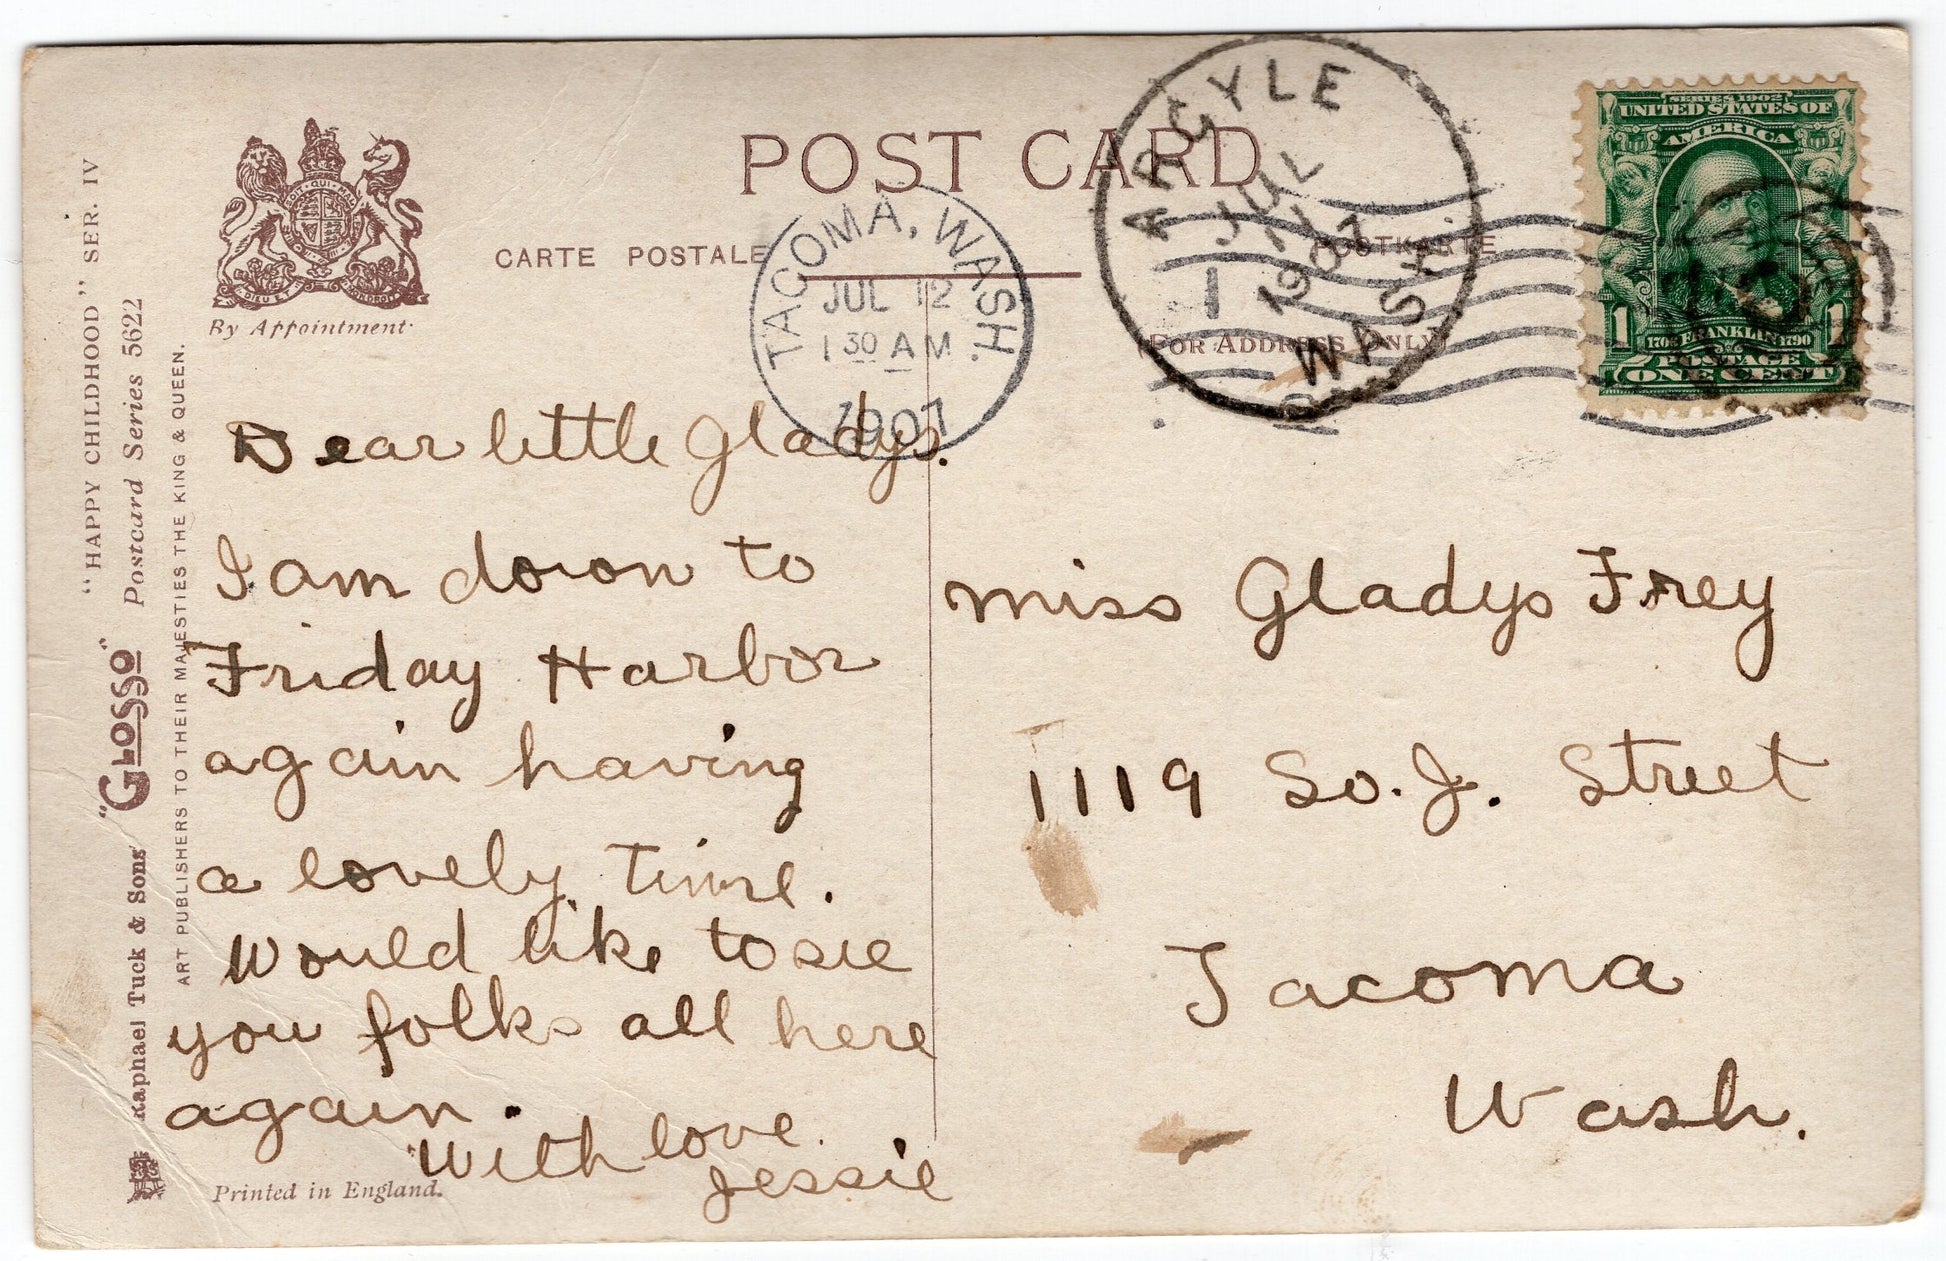 POST CARD
CARTE POSTALE
POSTKARTE
(FOR ADDRESS ONLY)
By Appointment
"HAPPY CHILDHOOD" SER. IV
"GLOSSO" Postcard Series 5622
Raphael Tuck & Sons'
ART PUBLISHERS TO THEIR MAJESTIES THE KING & QUEEN.
TACOMA, WASH.
JUL 12
1 30 AM
1907
ARGYLE
JUL
11
1907
WASH.
SERIES 1902
UNITED STATES OF
AMERICA
1 FRANKLIN 1790 1
POSTAGE
ONE CENT
Dear little Gladys.
I am down to
Friday Harbor
again having
a lovely time.
Would like to see
you folks all here
again.
With love.
Jessie
Miss Gladys Frey
1119 So. J. Street
Tacoma
Wash.
Printed in England.